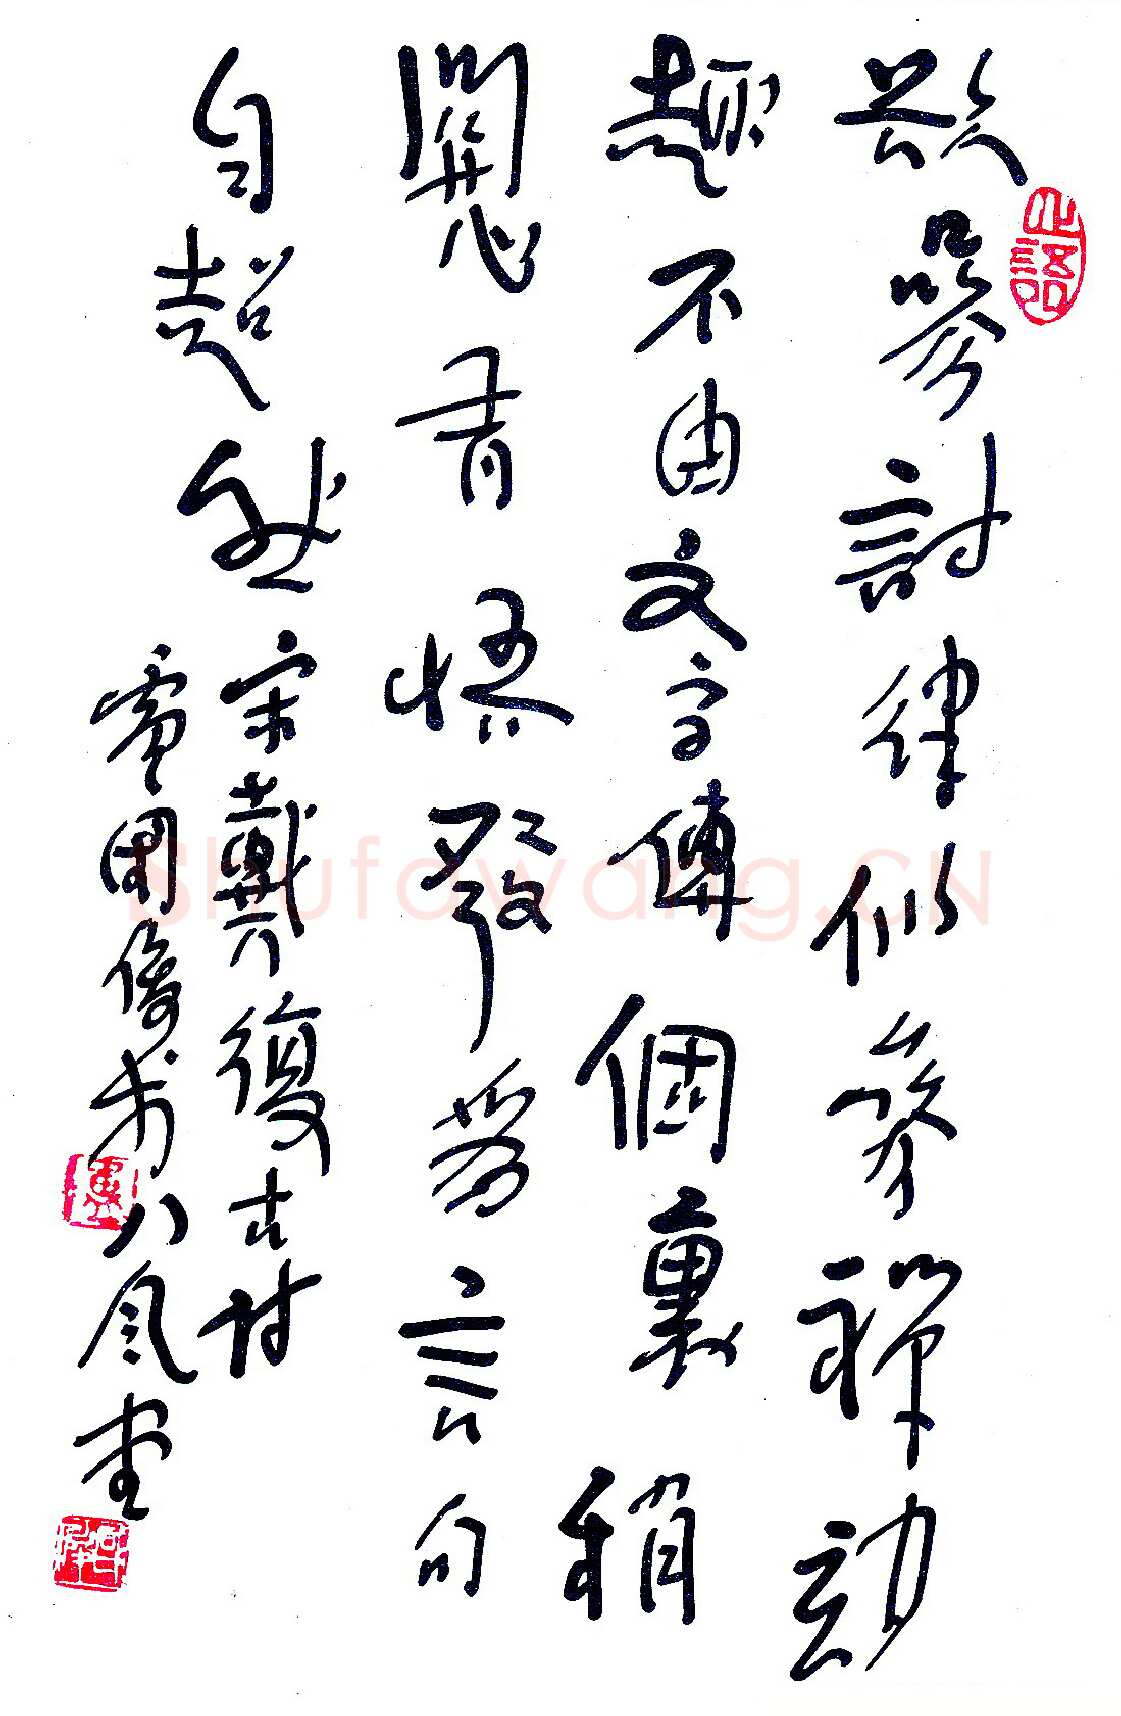 欲參詩律似參禪玅
趣不由文字傳個裏稍
關心有悟發為言句
自超然
宋戴復古詩
書八風堂
Shufawang.CN